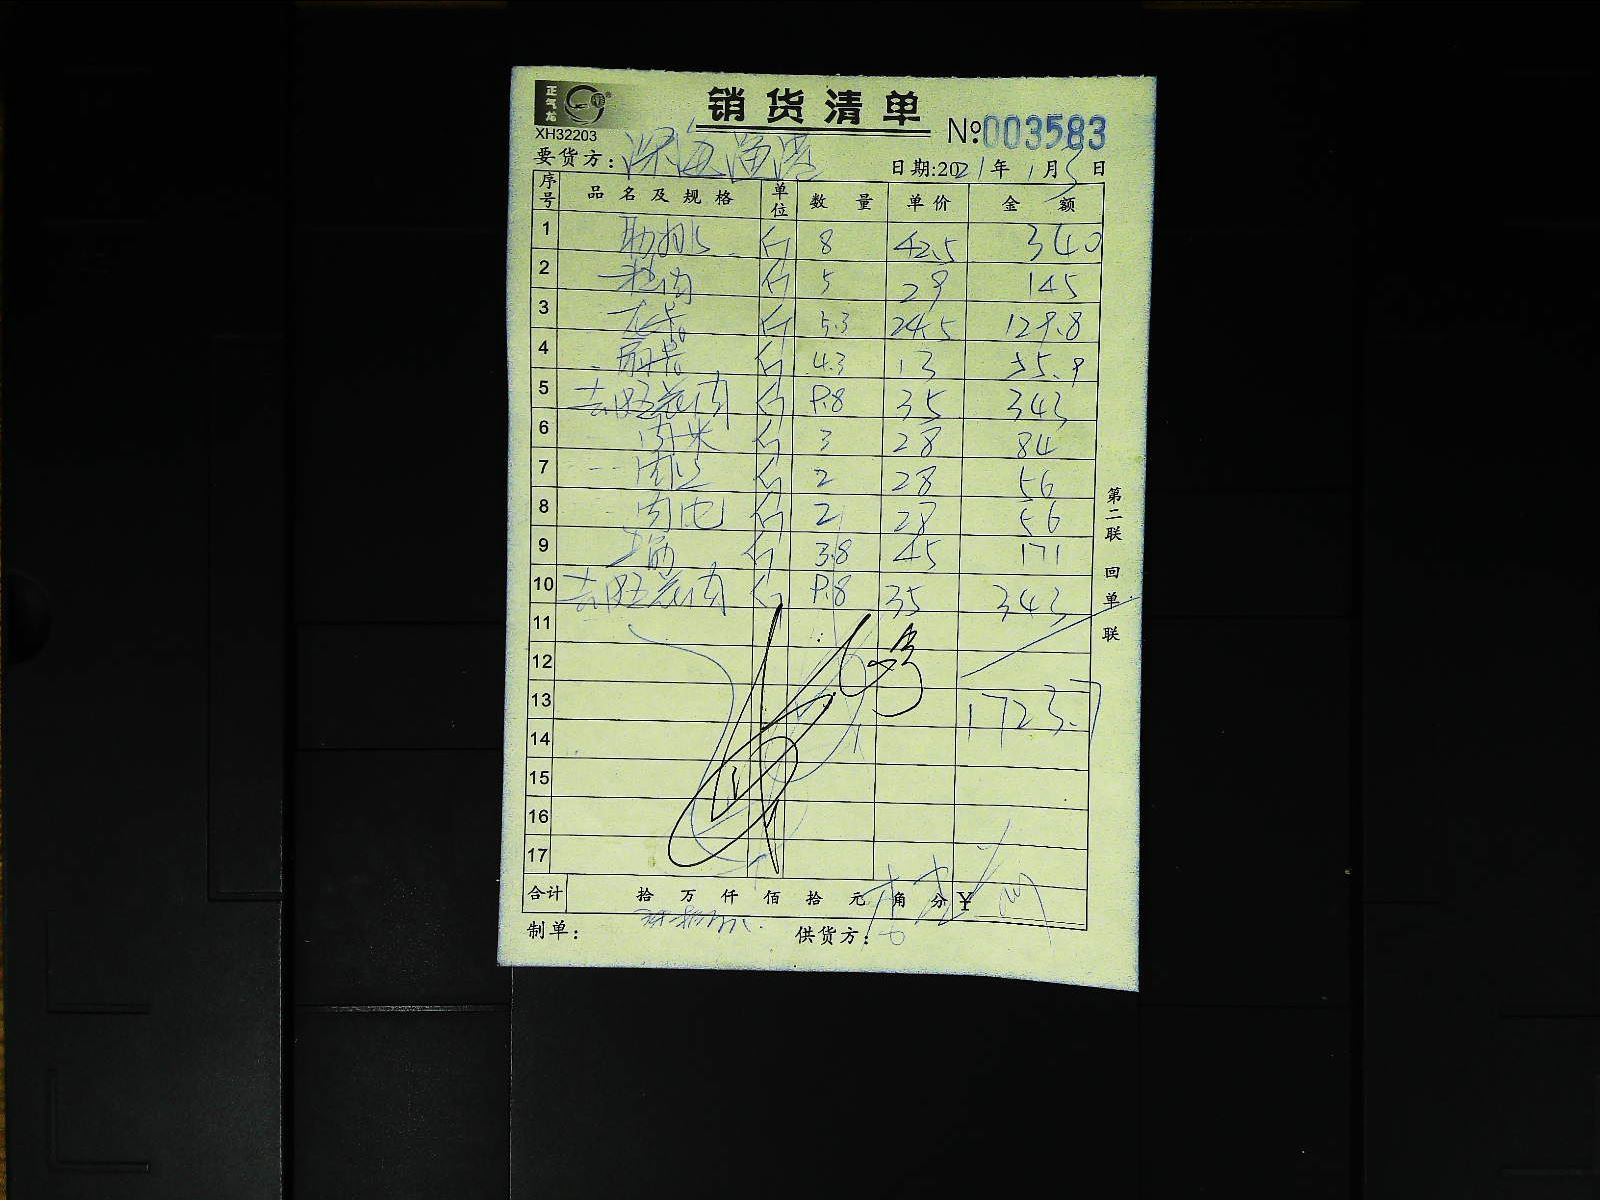 正气龙
销货清单
XH32203
№:003583
要货方: 深海渔港
日期:2021年1月5日
序号 品名及规格 单位 数量 单价 金额
1 肋排 斤 8 42.5 340
2 斤 5 29 145
3 斤 5.3 24.5 129.8
4 斤 4.3 13 55.9
5 去皮五花肉 斤 9.8 35 343
6 肉米 斤 3 28 84
7 肉丝 斤 2 28 56
8 斤 2 28 56
9 斤 3.8 45 171
10 去皮五花肉 斤 9.8 35 343
11
12
13 1723.7
14
15
16
17
合计 拾 万 仟 佰 拾 元 角 分 ¥
制单: 供货方:
第二联 回单联